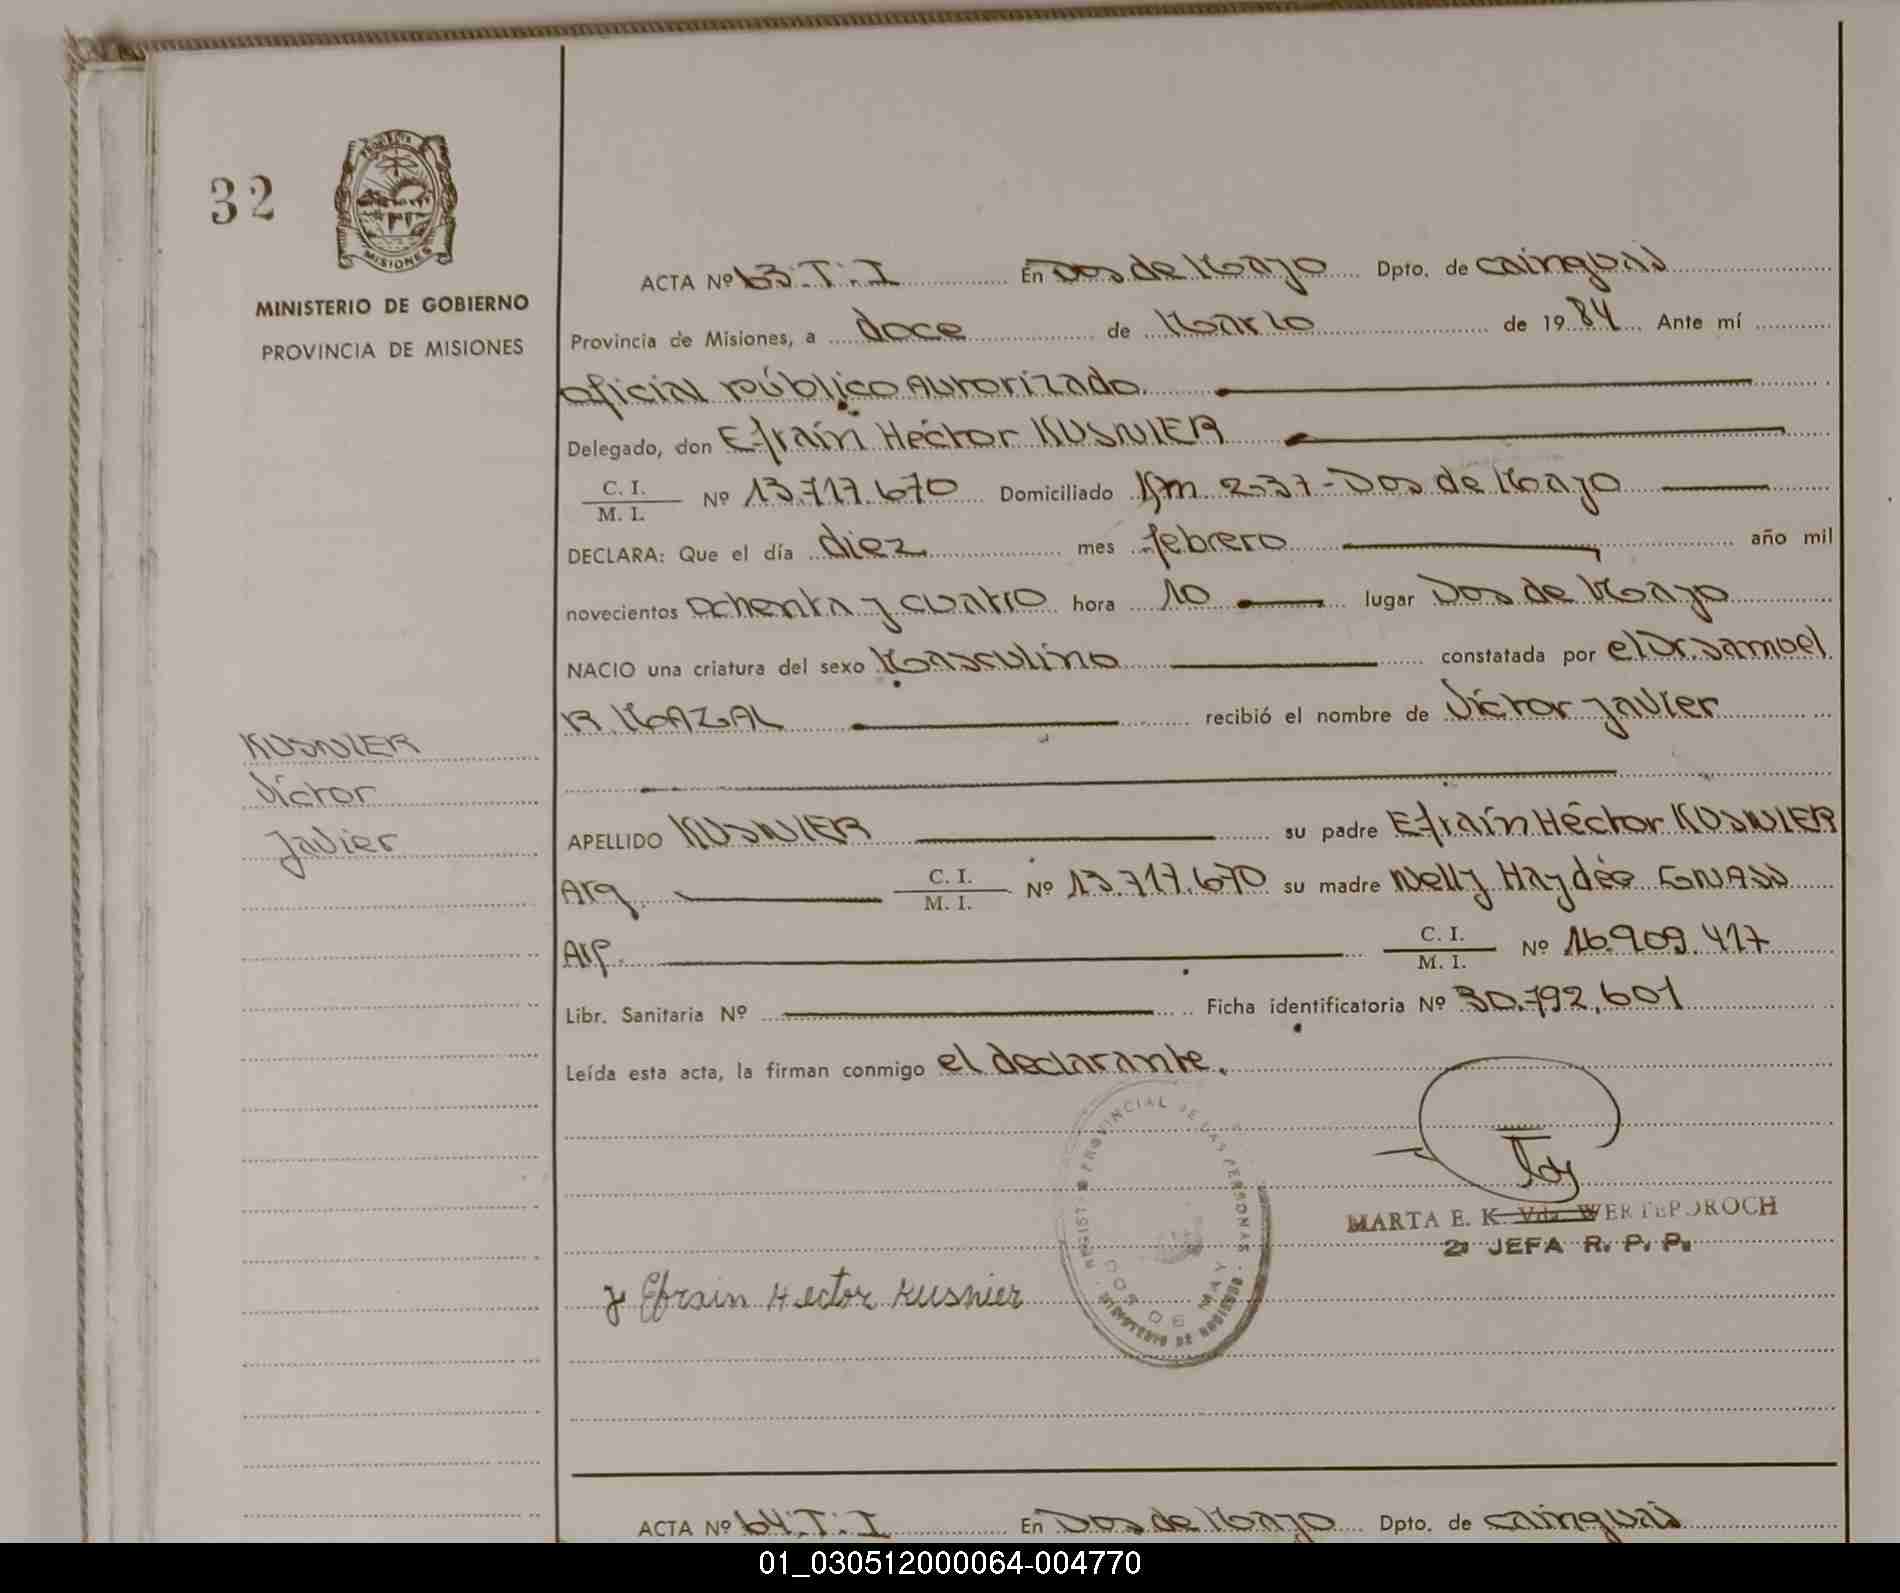 32
PROVINCIA
MISIONES
MINISTERIO DE GOBIERNO
PROVINCIA DE MISIONES
KUSNIER
Víctor
Javier
ACTA Nº 63.T.I En Dos de Mayo Dpto. de cainguás
Provincia de Misiones, a doce de Marzo de 1984 Ante mí
oficial público Autorizado.
Delegado, don Efraín Héctor KUSNIER
C. I.
M. I. Nº 13.717.670 Domiciliado Km 237-Dos de Mayo
DECLARA: Que el día diez mes febrero año mil
novecientos ochenta y cuatro hora 10 lugar Dos de Mayo
NACIO una criatura del sexo Masculino constatada por el Dr. Samuel
R. MAZAL recibió el nombre de Víctor Javier
APELLIDO KUSNIER su padre Efraín Héctor KUSNIER
Arg. C. I.
M. I. Nº 13.717.670 su madre Nelly Haydée
Arg. C. I.
M. I. Nº 16.909.417
Libr. Sanitaria Nº Ficha identificatoria Nº 30.792.601
Leída esta acta, la firman conmigo el declarante.
REGISTRO PROVINCIAL DE LAS PERSONAS
DOS DE MAYO
MINISTERIO DE GOBIERNO
MARTA E. K. Vda. WERTEPOROCH
2ª JEFA R. P. P.
Efrain Hector Kusnier
ACTA Nº 64.T.I En Dos de Mayo Dpto. de cainguás
01_030512000064-004770